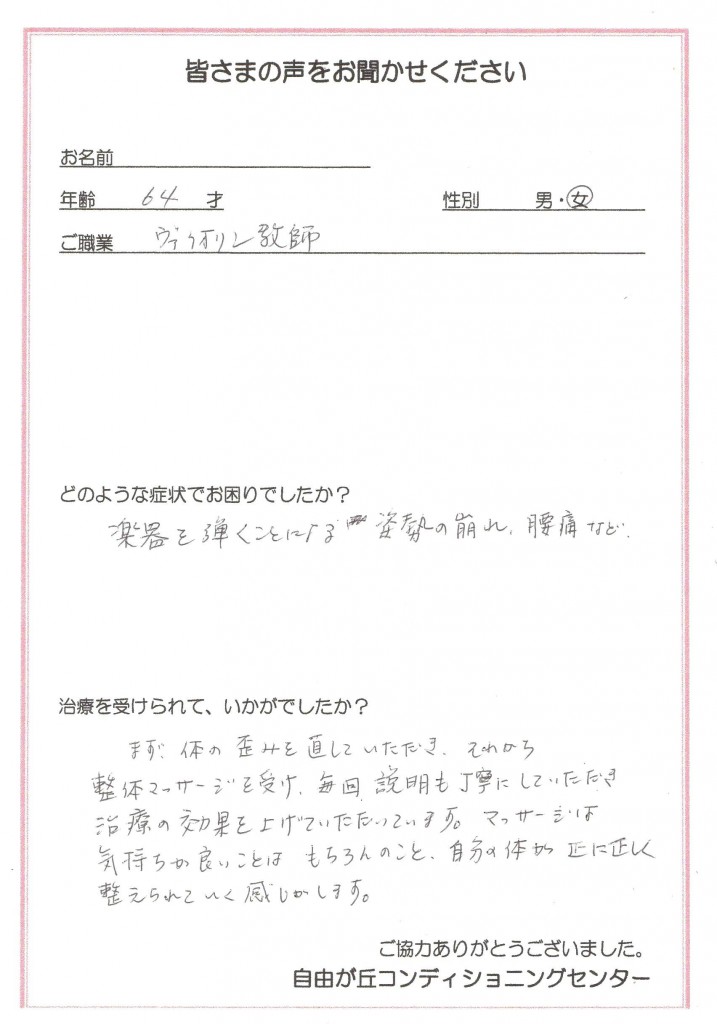 皆さまの声をお聞かせください
お名前
年齢 64 才 性別 男・女
ご職業 ヴァイオリン教師
どのような症状でお困りでしたか？
楽器を弾くことによる 姿勢の崩れ、腰痛など.
治療を受けられて、いかがでしたか？
まず、体の歪みを直していただき、それから
整体マッサージを受け、毎回、説明も丁寧にしていただき
治療の効果を上げていただいています。マッサージは
気持ちが良いことは もちろんのこと、自分の体が 正に正しく
整えられていく感じがします。
ご協力ありがとうございました。
自由が丘コンディショニングセンター